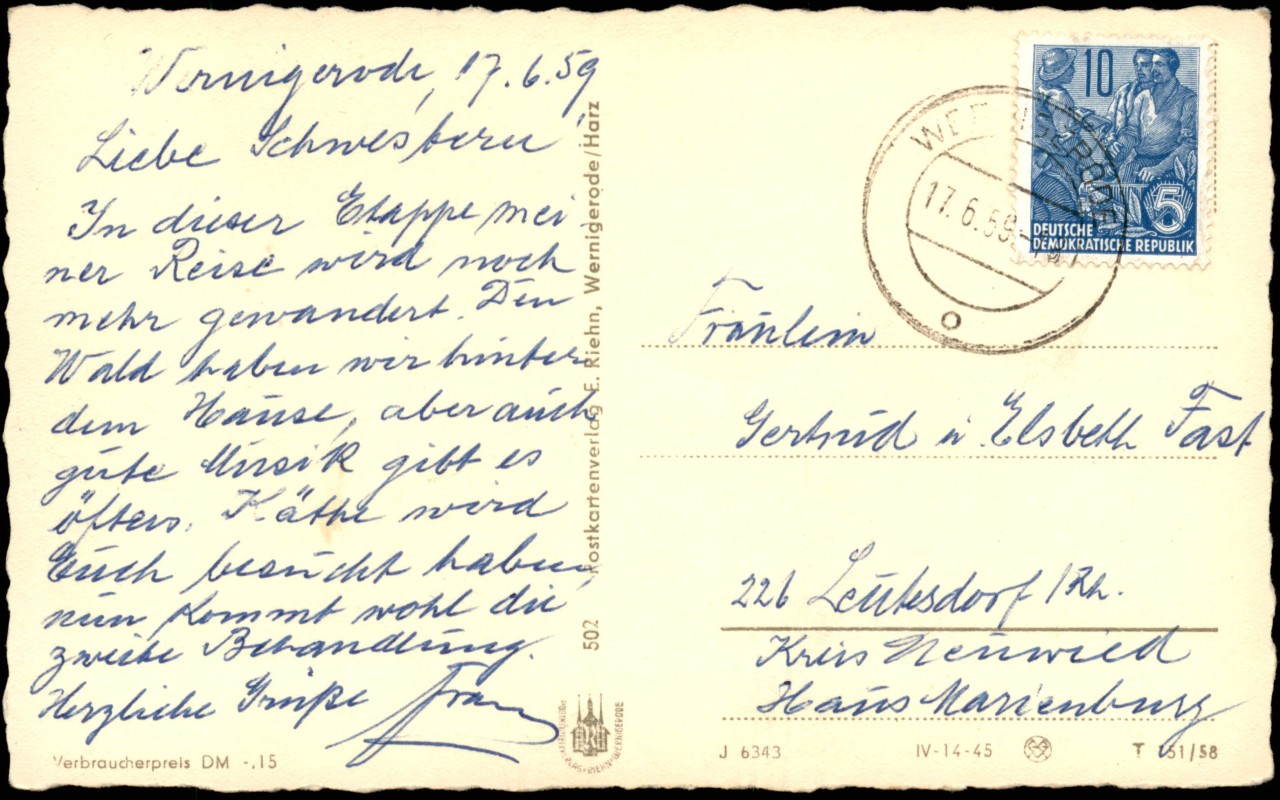 Wernigerode, 17.6.59
Liebe Schwestern,
In dieser Etappe mei
ner Reise wird noch
mehr gewandert. Den
Wald haben wir hinter
dem Hause, aber auch
gute Musik gibt es
öfters. Käthe wird
Euch besucht haben,
nun kommt wohl die
zweite Behandlung.
Herzliche Grüße Franz
Verbraucherpreis DM -.15
502 Postkartenverlag E. Riehn, Wernigerode/Harz
10
5
DEUTSCHE
DEMOKRATISCHE REPUBLIK
WERNIGERODE
17.6.59
Fräulein
Gertrud u Elsbeth Fast
226 Leutesdorf/Rh.
Kreis Neuwied
Haus Marienburg
J 6343 IV-14-45 T 151/58